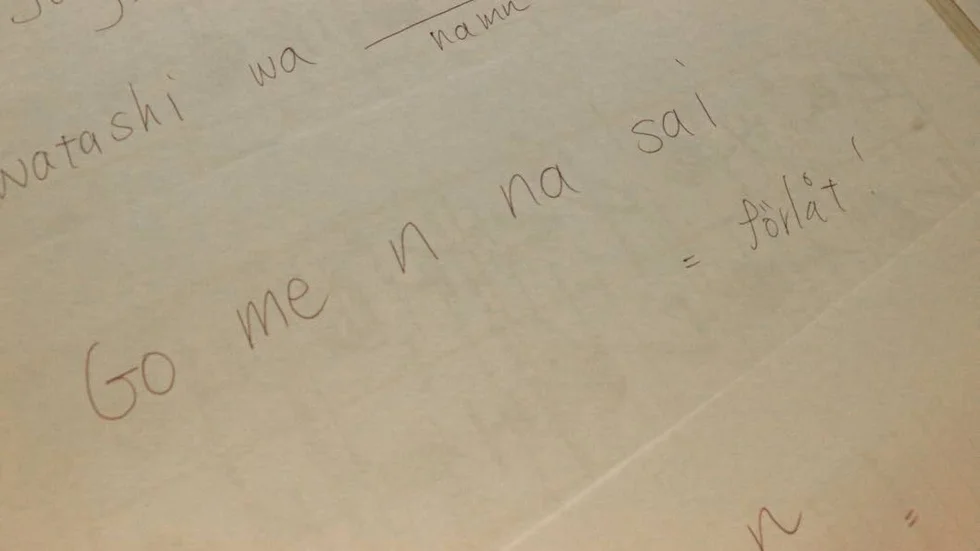 watashi wa ___
namn
Go me n na sai
= förlåt!
n =